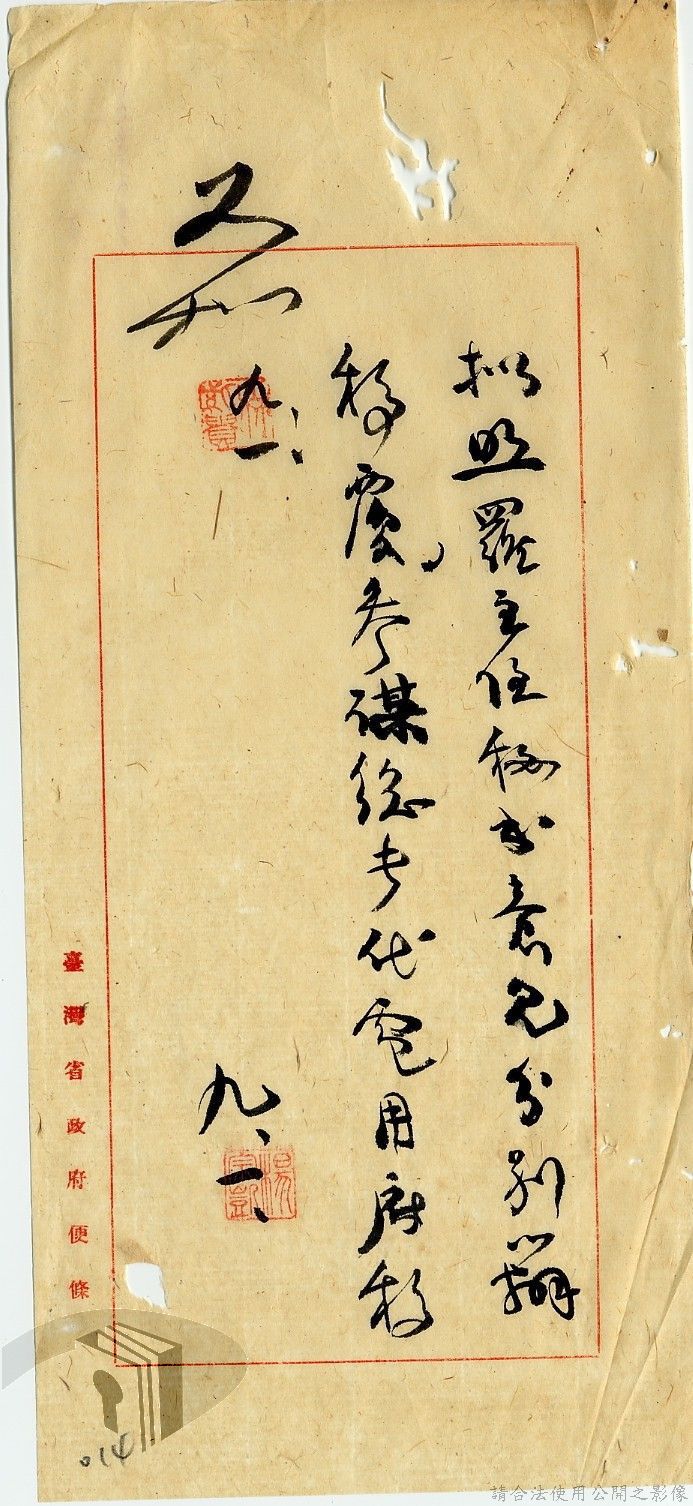 擬照羅主任秘書意見分別辦
稿覆參謀總長代電用府稿
九、一、
如
九、一、
臺灣省政府便條
014
請合法使用公開之影像